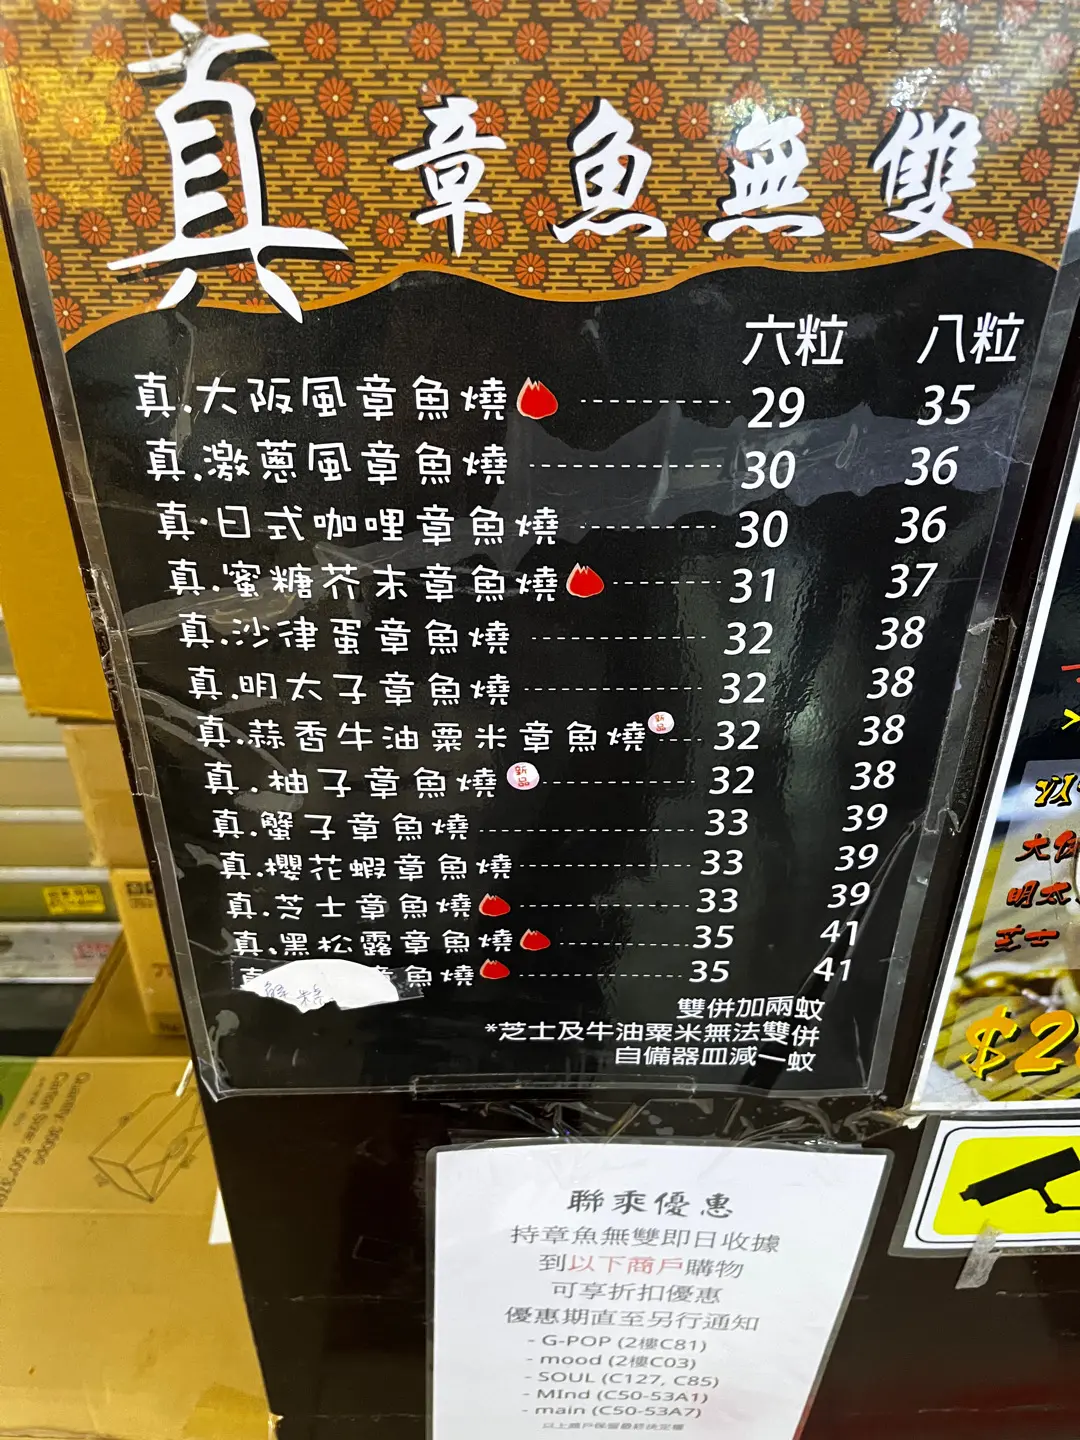 真 章魚無雙
六粒 八粒
真.大阪風章魚燒 29 35
真.激蔥風章魚燒 30 36
真.日式咖哩章魚燒 30 36
真.蜜糖芥末章魚燒 31 37
真.沙律蛋章魚燒 32 38
真.明太子章魚燒 32 38
真.蒜香牛油粟米章魚燒 新品 32 38
真.柚子章魚燒 新品 32 38
真.蟹子章魚燒 33 39
真.櫻花蝦章魚燒 33 39
真.芝士章魚燒 33 39
真.黑松露章魚燒 35 41
章魚燒 35 41
雙併加兩蚊
*芝士及牛油粟米無法雙併
自備器皿減一蚊
大
明太
芝士
$2
聯乘優惠
持章魚無雙即日收據
到以下商戶購物
可享折扣優惠
優惠期直至另行通知
- G-POP (2樓C81)
- mood (2樓C03)
- SOUL (C127, C85)
- MInd (C50-53A1)
- main (C50-53A7)
以上商戶保留最終決定權
Quantity: 300pcs